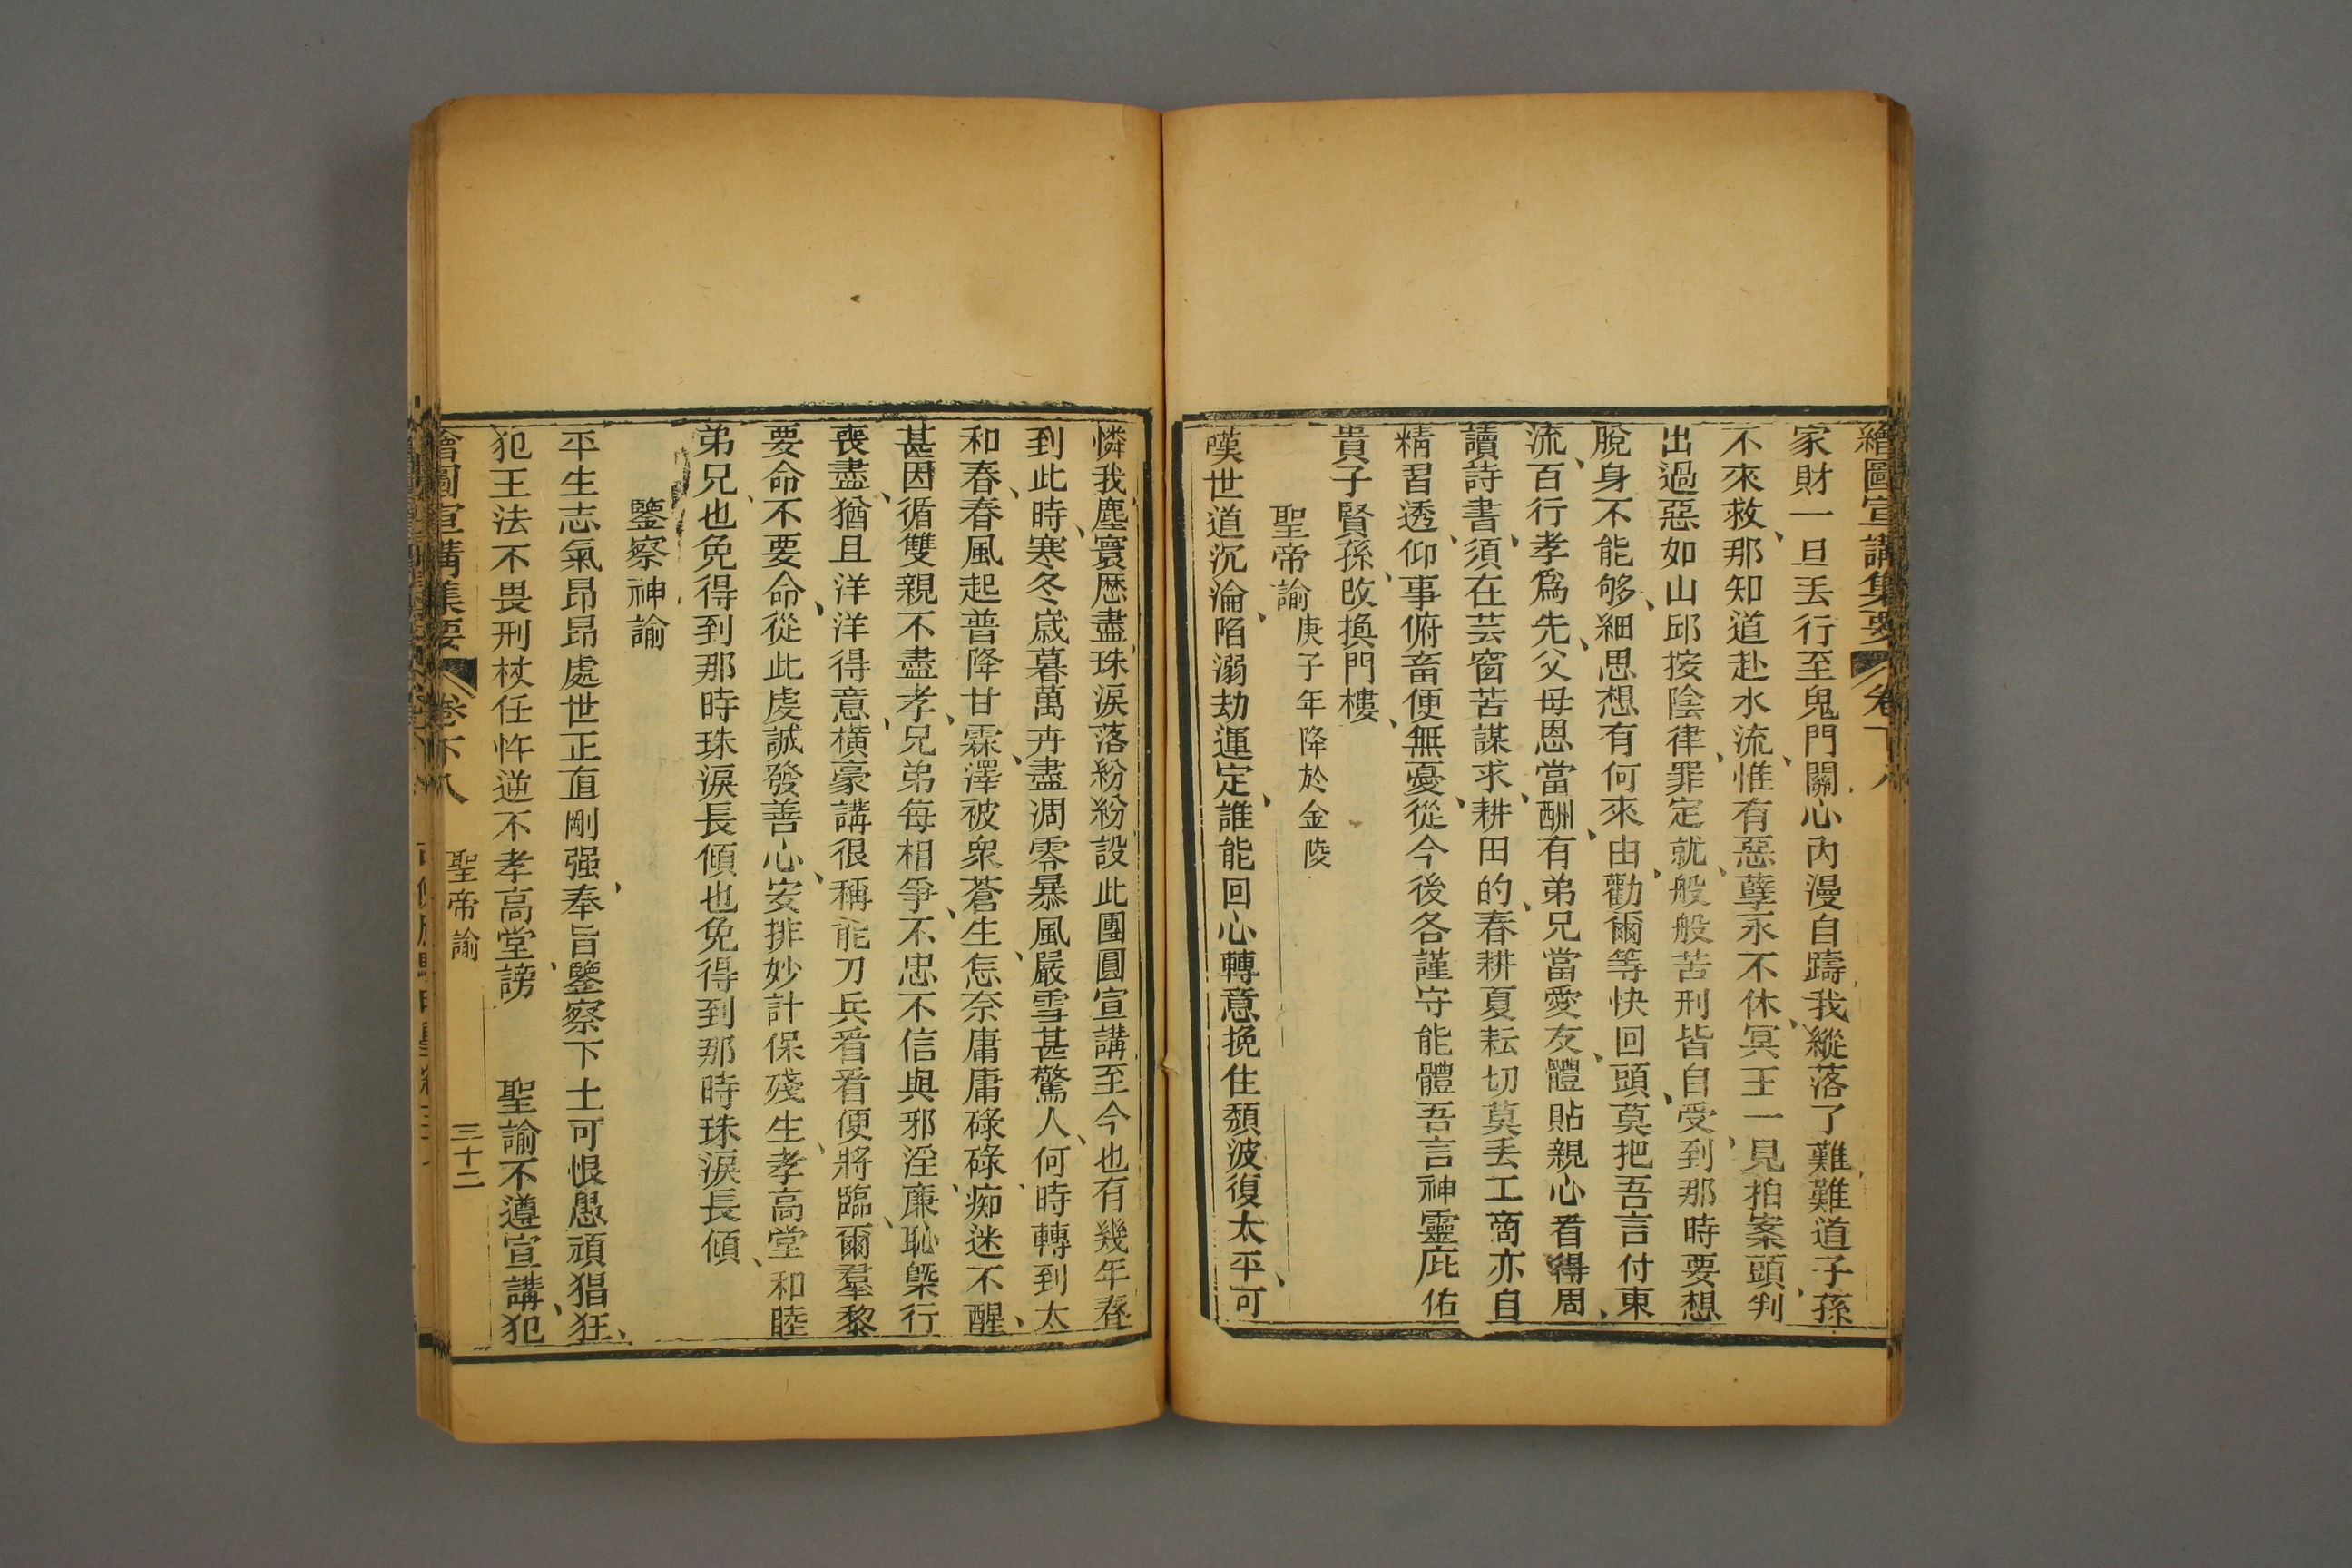 繪圖宣講集要 卷下八
家財一旦丟行至鬼門關心內漫自躊我縱落了難難道子孫
不來救那知道赴水流惟有惡孽永不休冥王一見拍案頭判
出過惡如山邱按陰律罪定就般般苦刑皆自受到那時要想
脫身不能够細思想有何來由勸爾等快回頭莫把吾言付東
流百行孝爲先父母恩當酬有弟兄當愛友體貼親心看得周
讀詩書須在芸窗苦謀求耕田的春耕夏耘切莫丟工商亦自
精習透仰事俯畜便無憂從今後各謹守能體吾言神靈庇佑
貴子賢孫改換門樓
聖帝諭 庚子年降於金陵
嘆世道沉淪陷溺劫運定誰能回心轉意挽住頹波復太平可
憐我塵寰歷盡珠淚落紛紛設此團圓宣講至今也有幾年春
到此時寒冬歲暮萬卉盡凋零暴風嚴雪甚驚人何時轉到太
和春春風起普降甘霖澤被衆蒼生怎奈庸庸碌碌痴迷不醒
甚因循雙親不盡孝兄弟每相爭不忠不信與邪淫廉恥槩行
喪盡猶且洋洋得意橫豪講很稱能刀兵看看便將臨爾羣黎
要命不要命從此虔誠發善心安排妙計保殘生孝高堂和睦
弟兄也免得到那時珠淚長傾也免得到那時珠淚長傾
鑒察神諭
平生志氣昂昂處世正直剛强奉旨鑒察下土可恨愚頑猖狂
犯王法不畏刑杖任忤逆不孝高堂謗 聖諭不遵宣講犯
繪圖宣講集要 卷下八 聖帝諭 三十二